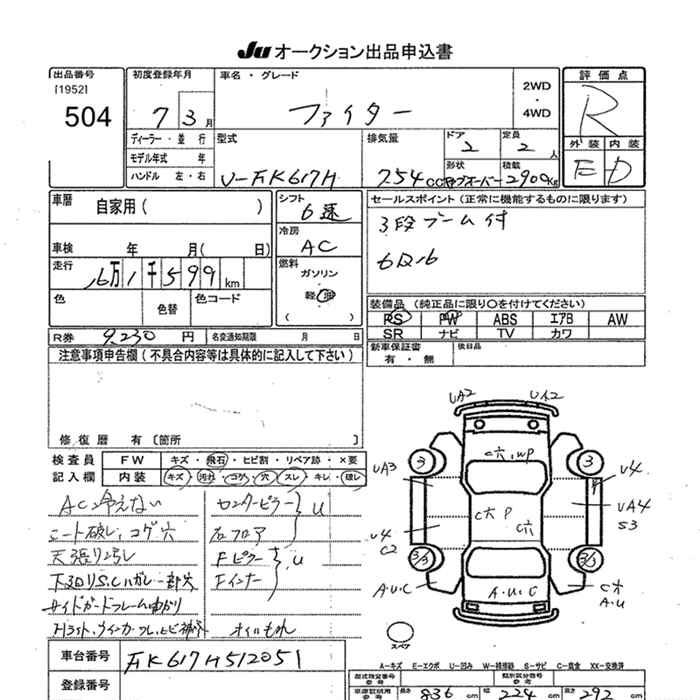 Ju オークション出品申込書
出品番号
[1952]
504
初度登録年月
7 3月
車名・グレード
ファイター
2WD
・
4WD
評価点
R
ディーラー・並行
モデル年式 年
ハンドル 左・右
型式
U-FK617H
排気量
754CC
ドア
2
定員
2人
形状
積載
2900Kg
外装 内装
E D
車歴
自家用( )
車検 年 月( 日)
走行
16万1千599km
色
色替
色コード
シフト
6速
冷房
AC
燃料
ガソリン
軽油
( )
セールスポイント(正常に機能するものに限ります)
3段ブーム付
6D16
装備品 (純正品に限り○を付けてください)
PS PW ABS エアB AW
SR ナビ TV カワ
R券 9,230円
名変通知期限 月 日
新車保証書
有・無
後日品
注意事項申告欄(不具合内容等は具体的に記入して下さい)
修復歴 有〔箇所 〕
検査員 FW キズ・飛石・ヒビ割・リペア跡・×要
記入欄 内装 キズ・汚れ・コゲ・穴・スレ・キレ・破レ
AC冷えない
シート破レ,コゲ穴
天張り汚レ
下回りS.Cハガレ一部穴
サイドガードフレーム曲がり
センターピラー
右フロア
U
Fピラー
Fインナー
U
オイルもれ
UA2 UA2
C穴,WP
3 3
UA3 U4
C穴 P
C穴
UA4
S3
U4
C2
3/3 3/3
A・U・C
A・U・C
C穴
A・U
スペア
A-キズ E-エクボ U-凹み W-補修跡 S-サビ C-腐食 XX-交換済
車台番号 FK617H512051
登録番号
型式指定番号
参考
類別区分番号
参考
長さ 836cm 224cm 高さ 292cm